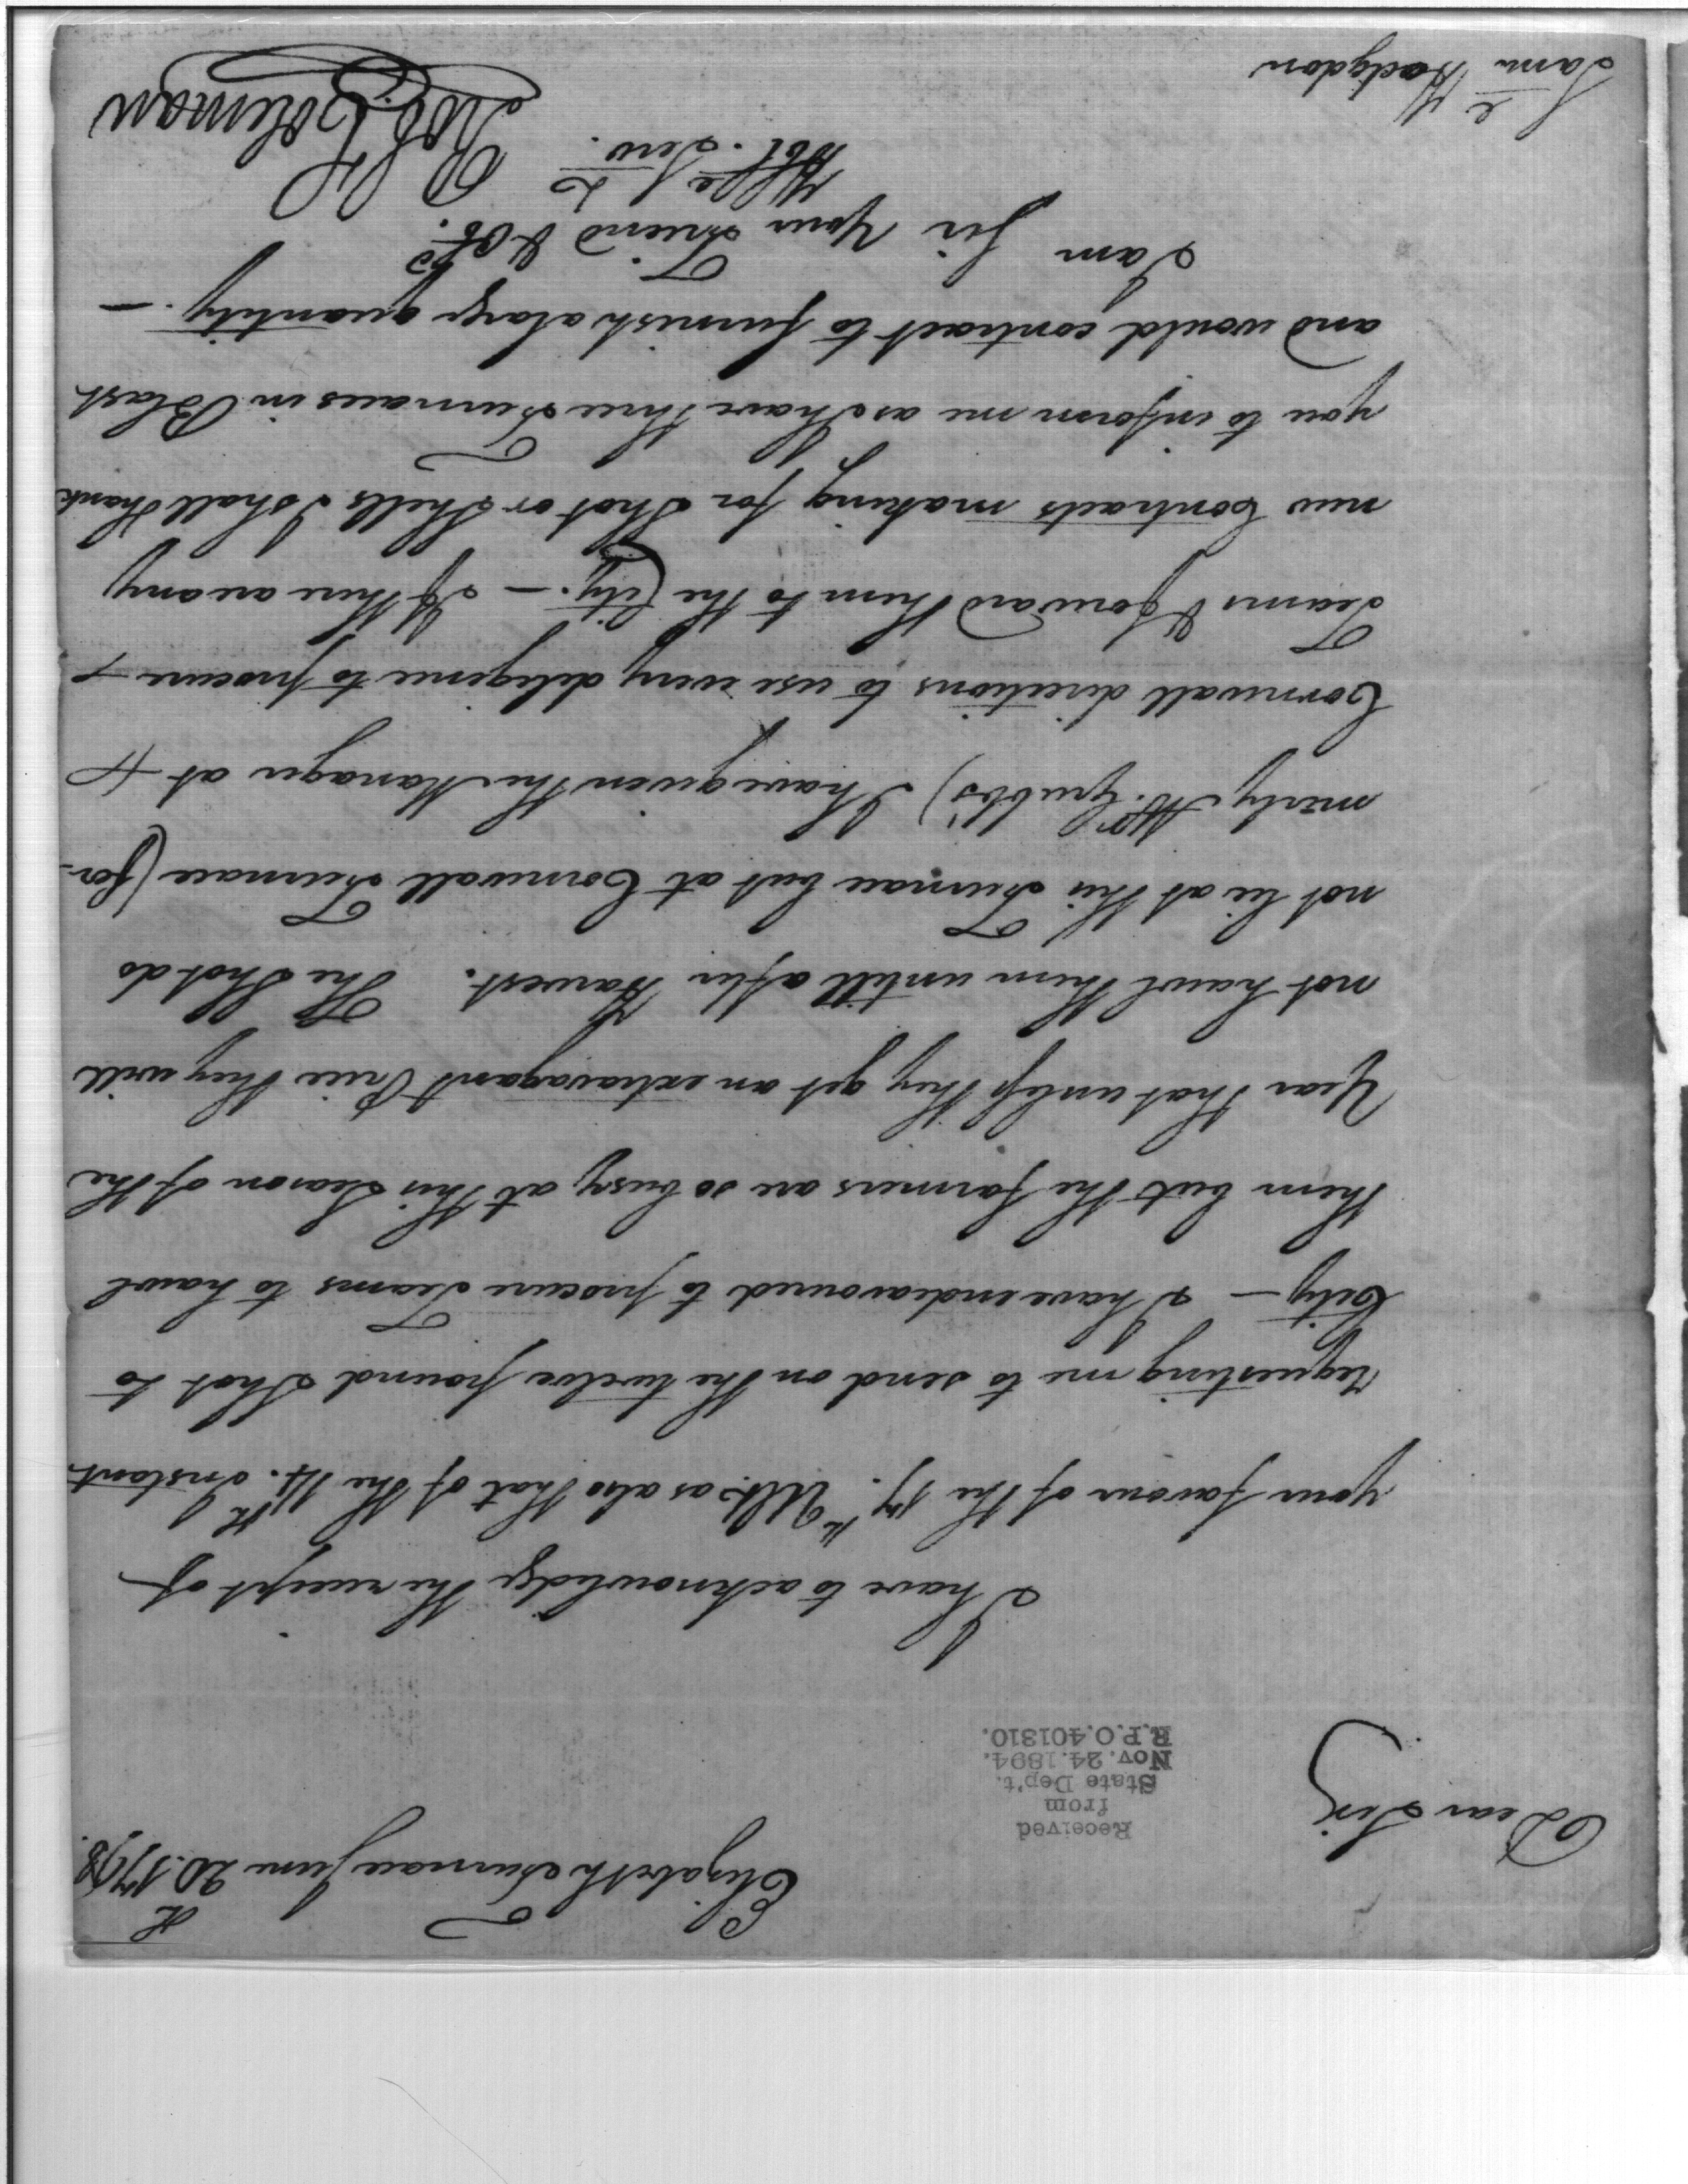 Elizabeth Furnace June 20th 1798.
Received
from
State Dep't.
Nov. 24. 1894.
R.P.O. 401310.
Dear Sir
I have to acknowledge the receipt of
your favour of the 17th Ulto. as also that of the 14th Instant
requesting me to send on the twelve pound Shot to
City — I have endeavoured to procure Teams to hawl
them but the farmers are so busy at this Season of the
Year that unless they get an extravagant Price they will
not hawl them untill after Harvest. The Shot do
not lie at this Furnace but at Cornwall Furnace (for-
merly Mr. Grubb's) I have given the Manager at
Cornwall directions to use every diligence to procure
Teams & forward them to the City. — If there are any
new Contracts making for Shot or Shells I shall thank
you to inform me as I have three Furnaces in Blast
and would contract to furnish a large quantity. —
I am Sir Your Friend &
Hble Sevt.
Robt Coleman
Saml Hodgdon